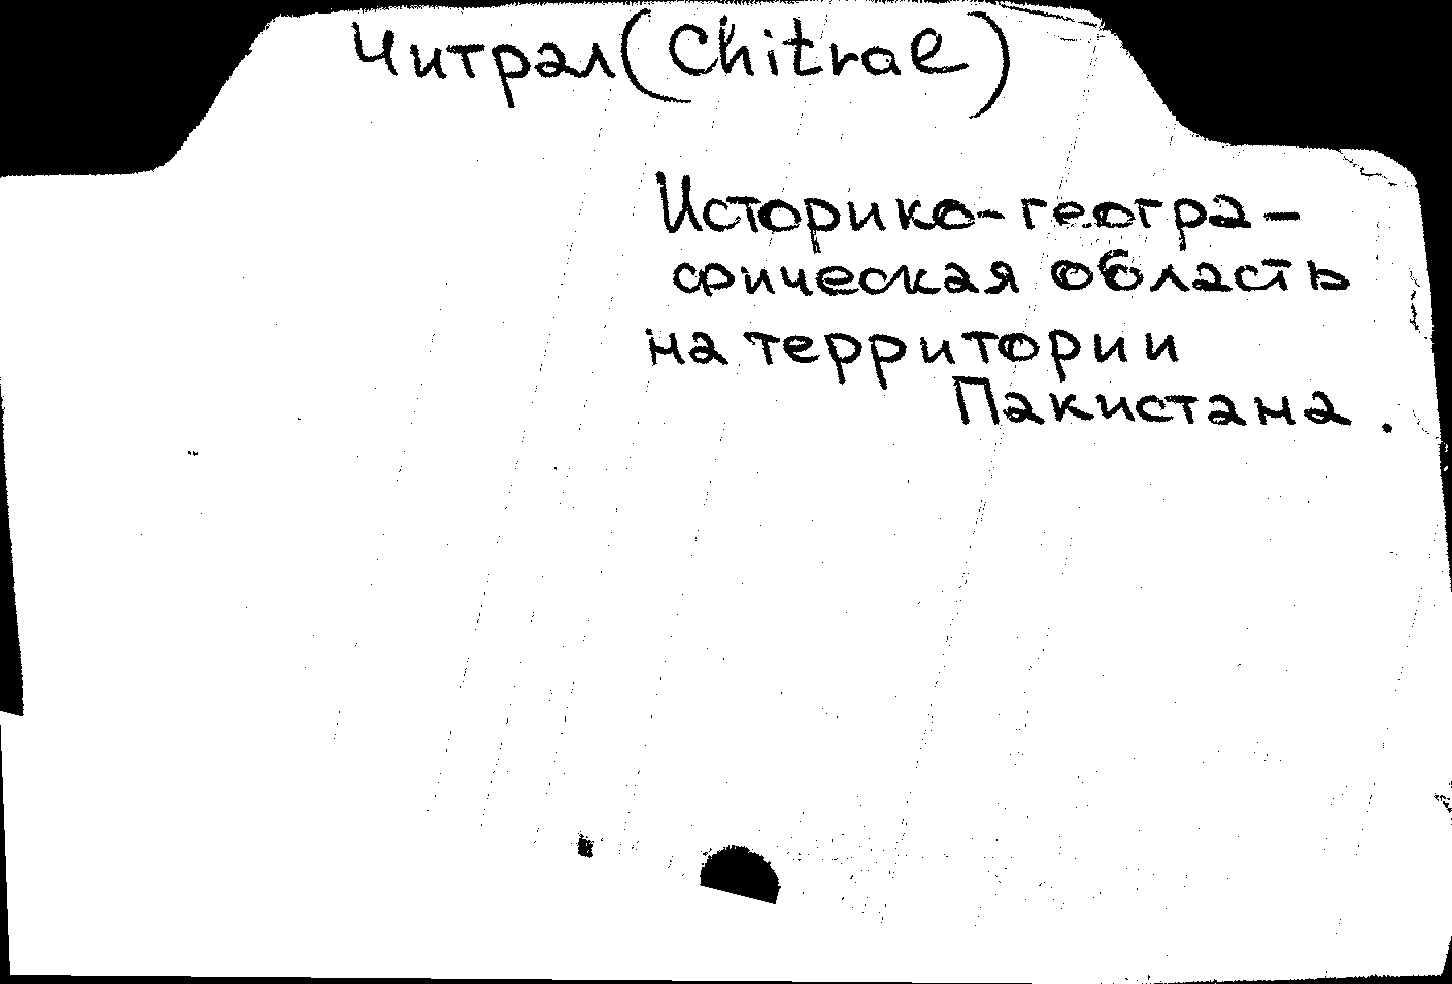 Читрал (Chitral)
Историко-геогра-
фическая область
на территории
Пакистана.